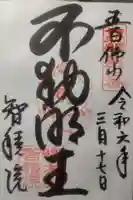 五百佛山
令和六年
三月十七日
不動明王
智積院